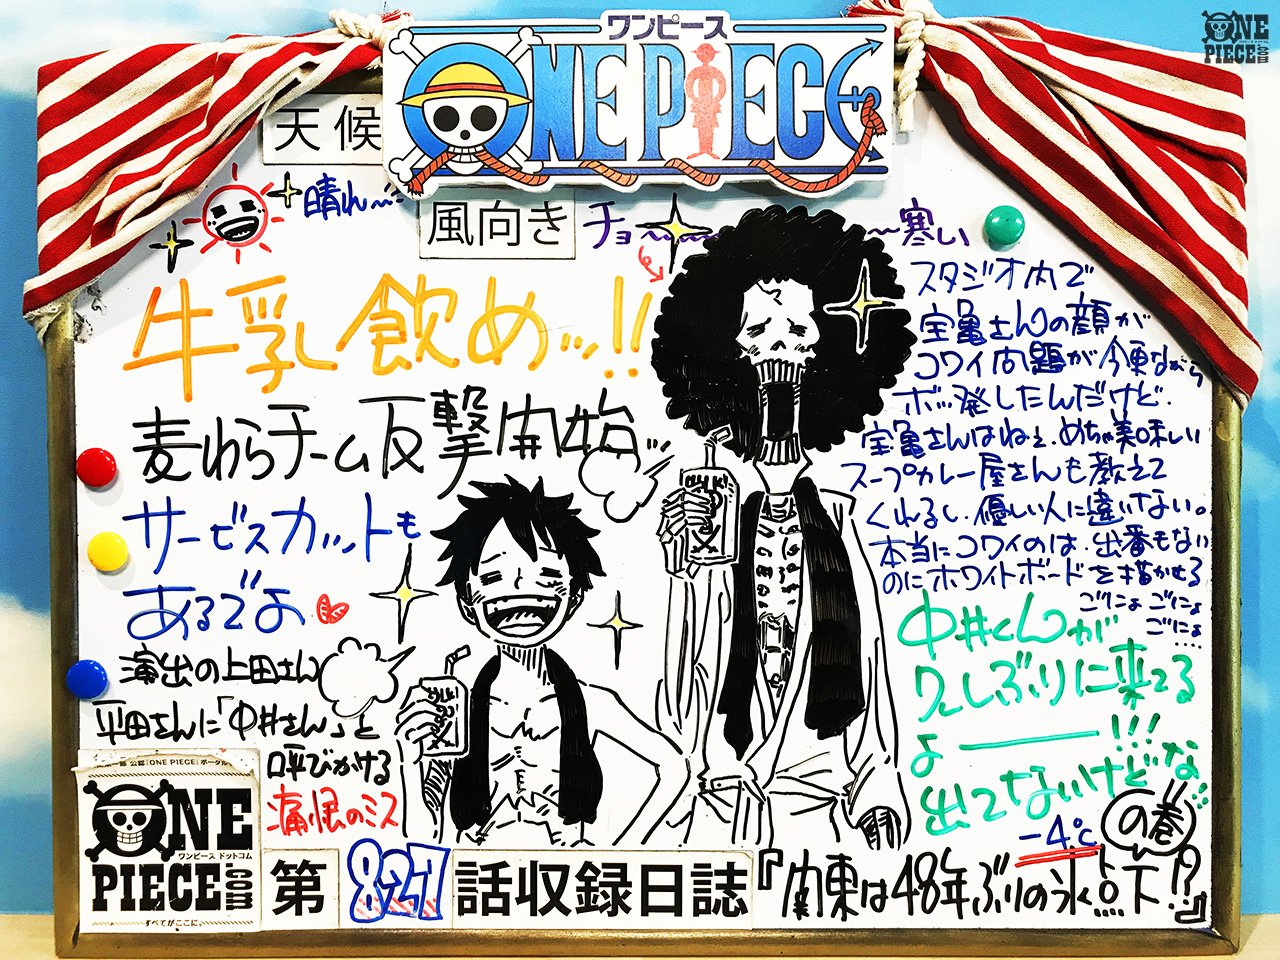 ワンピース
ONE PIECE
ONE
PIECE.com
天候
晴れ〜
風向き
チョ〜〜寒い
牛乳飲めッ!!
麦わらチーム反撃開始
サービスカットも
あるでよ
演出の上田さん
平田さんに「中井さん」と
呼びかける
痛恨のミス
スタジオ内で
宝亀さんの顔が
コワイ問題が今更ながら
ボッ発したんだけど、
宝亀さんはねぇ、めちゃ美味しい
スープカレー屋さんも教えて
くれるし、優しい人に違いない。
本当にコワイのは、出番もない
のにホワイトボードを描かせる
ごにょごにょ
ごにょ…
中井くんが
久しぶりに来てる
よ――!!!
出てないけどな…
の巻
-4℃
公認「ONE PIECE」ポータル
ONE
ワンピース ドットコム
PIECE.com
すべてがここに。
第827話収録日誌『関東は48年ぶりの氷点下!?』